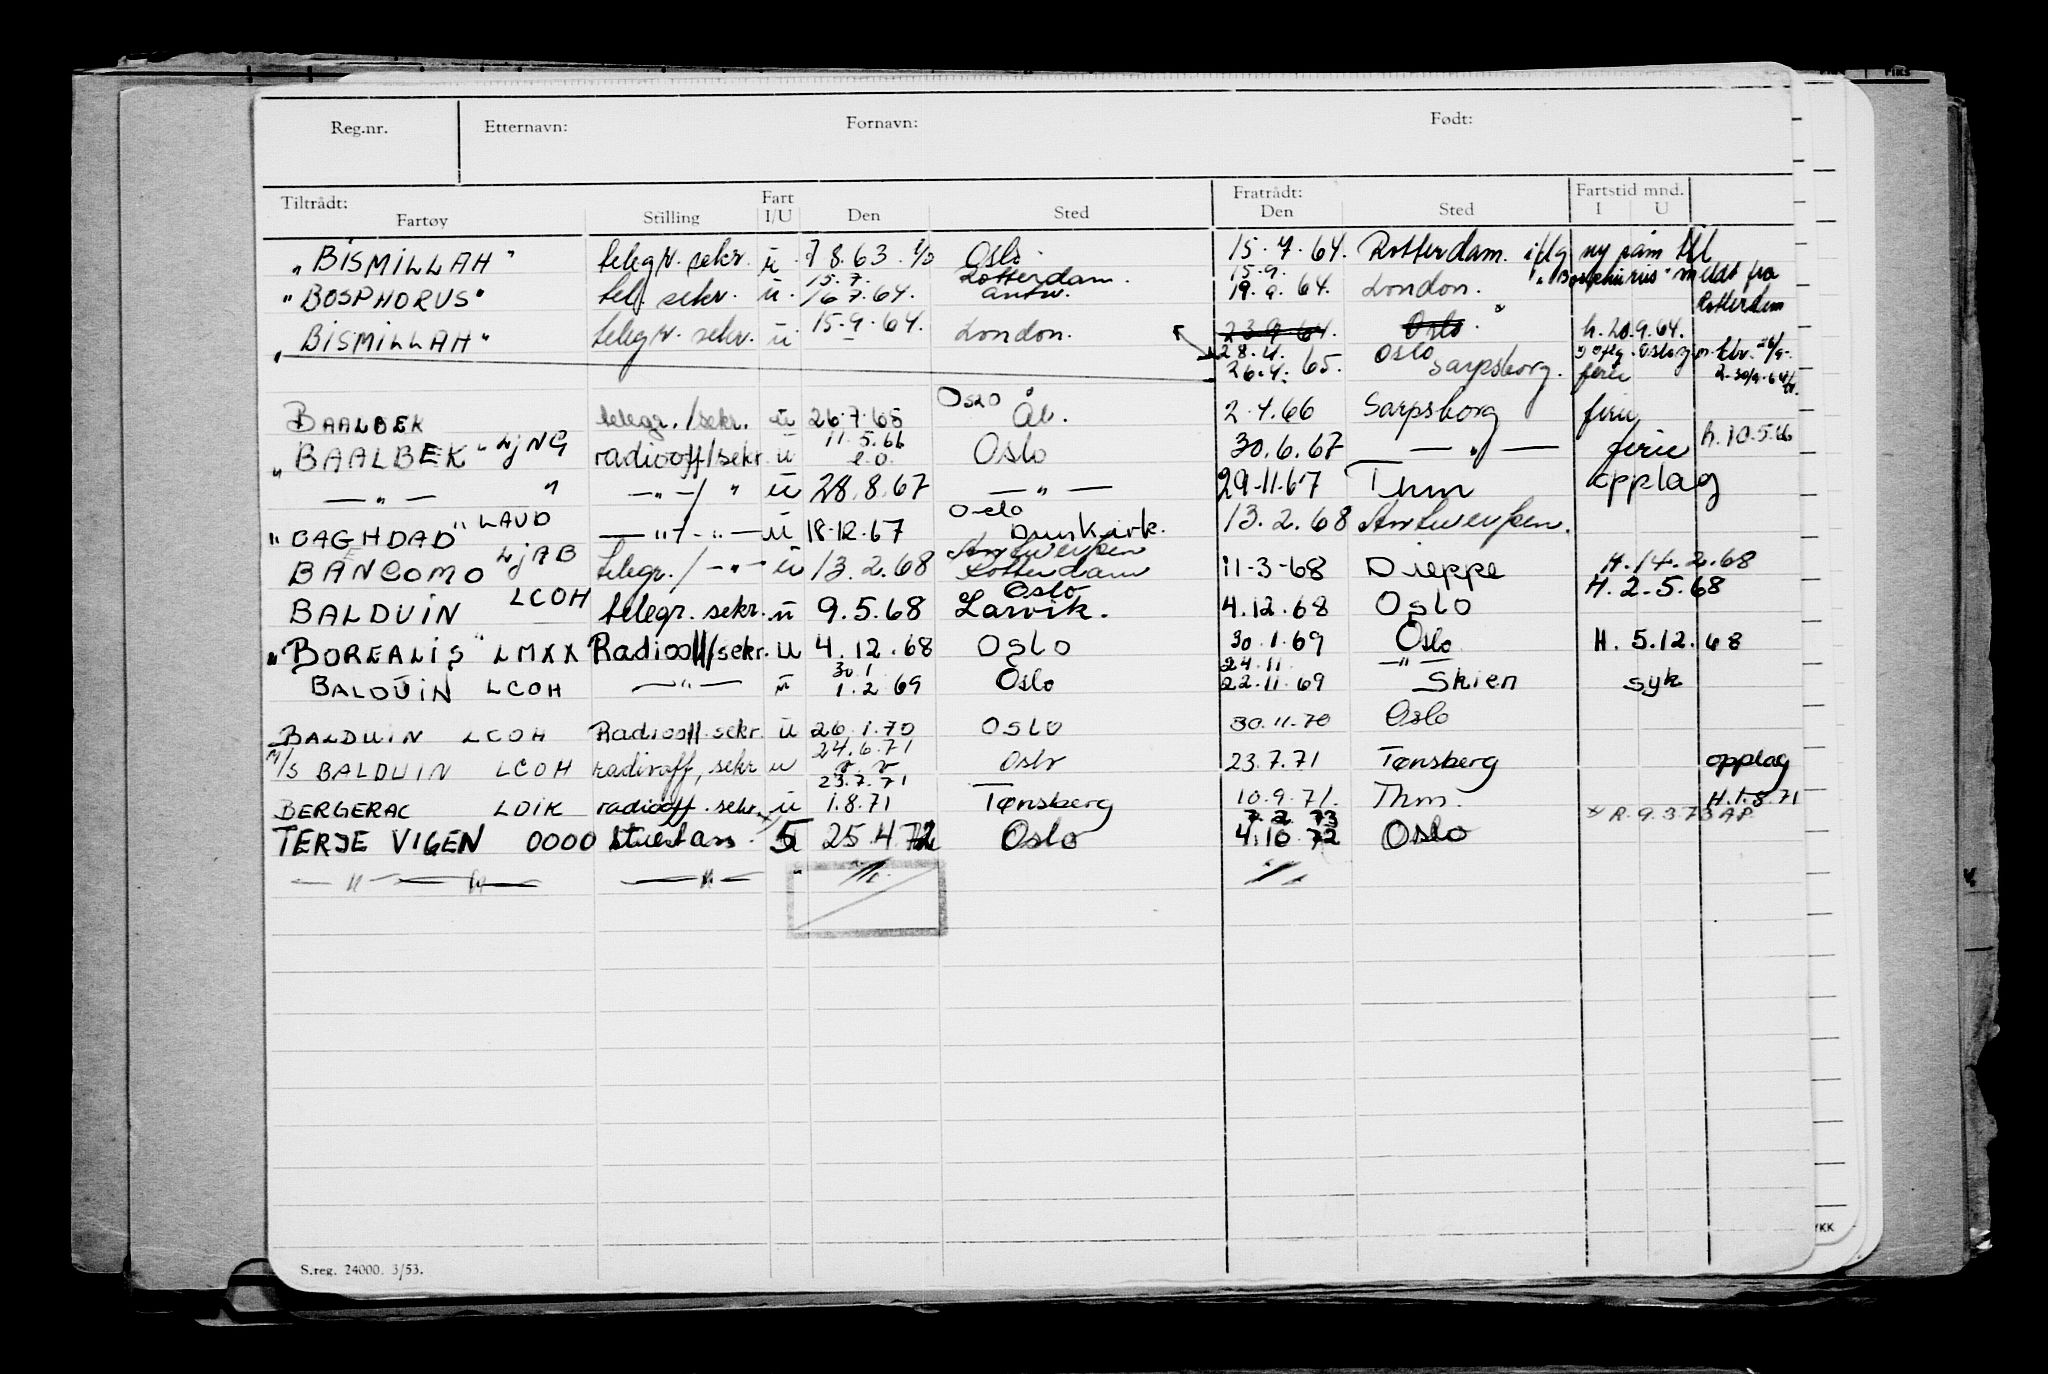 Reg.nr. Etternavn: Fornavn: Født:
Tiltrådt: Fart Fratrådt: Fartstid mnd.
Fartøy Stilling I/U Den Sted Den Sted I U
"BISMILLAH" telegr. sekr. u. 7 8.63. Oslo. 15.7.64. Rotterdam. iflg ny påm til
15.7. Rotterdam. 15.9. "Bosphurus" meldt fra
"BOSPHORUS" tel. sekr. u. 16 7.64. antw. 19.9.64. London. Rotterdam
"BISMILLAH" telegr. sekr. u 15.9.64. London. 23.9.64. Oslo. h. 20.9.64.
28.4. Oslo
26.4. 65. Sarpsborg. ferie
Oslo
BAALBEK telegr./sekr. u 26.7.65 Åb. 2.4.66 Sarpsborg ferie
11.5.66 h. 10.5.66
"BAALBEK" LJNG radiooff/sekr u Oslo 30.6.67 — " — ferie
— " — " — " —/ " u 28.8.67 — " — 29-11.67 Thm opplag
Oslo
"BAGHDAD" LAUD — " — " — u 18-12.67 Dunkirk. 13.2.68 Antwerpen.
Antwerpen
BANCOMO LJAB telegr./ — " — u 13.2.68 Rotterdam 11-3-68 Dieppe H.14.2.68
Oslo H. 2.5.68
BALDUIN LCOH telegr. sekr. u 9.5.68 Larvik. 4.12.68 Oslo
"BOREALIS" LMXX Radiooff/sekr. u 4.12.68 Oslo 30.1.69 Oslo H. 5.12.68
30.1 24.11. — " —
BALDUIN LCOH — " — u 1.2 69 Oslo 22.11.69 Skien syk
BALDUIN LCOH Radiooff. sekr. u 26.1.70 Oslo 30.11.70 Oslo
24.6.71
M/S BALDUIN LCOH radiooff, sekr u Oslo 23.7.71 Tønsberg opplag
23.7.71
BERGERAC LDIK radiooff. sekr. u 1.8.71 Tønsberg 10.9.71. Thm. H.1.8.71
7 2 73 R. 9.3.73 AP
TERJE VIGEN OOOO 25.4.72 Oslo 4.10.72 Oslo
— " — " — — " — "
S.reg. 24000. 3/53.
YKK